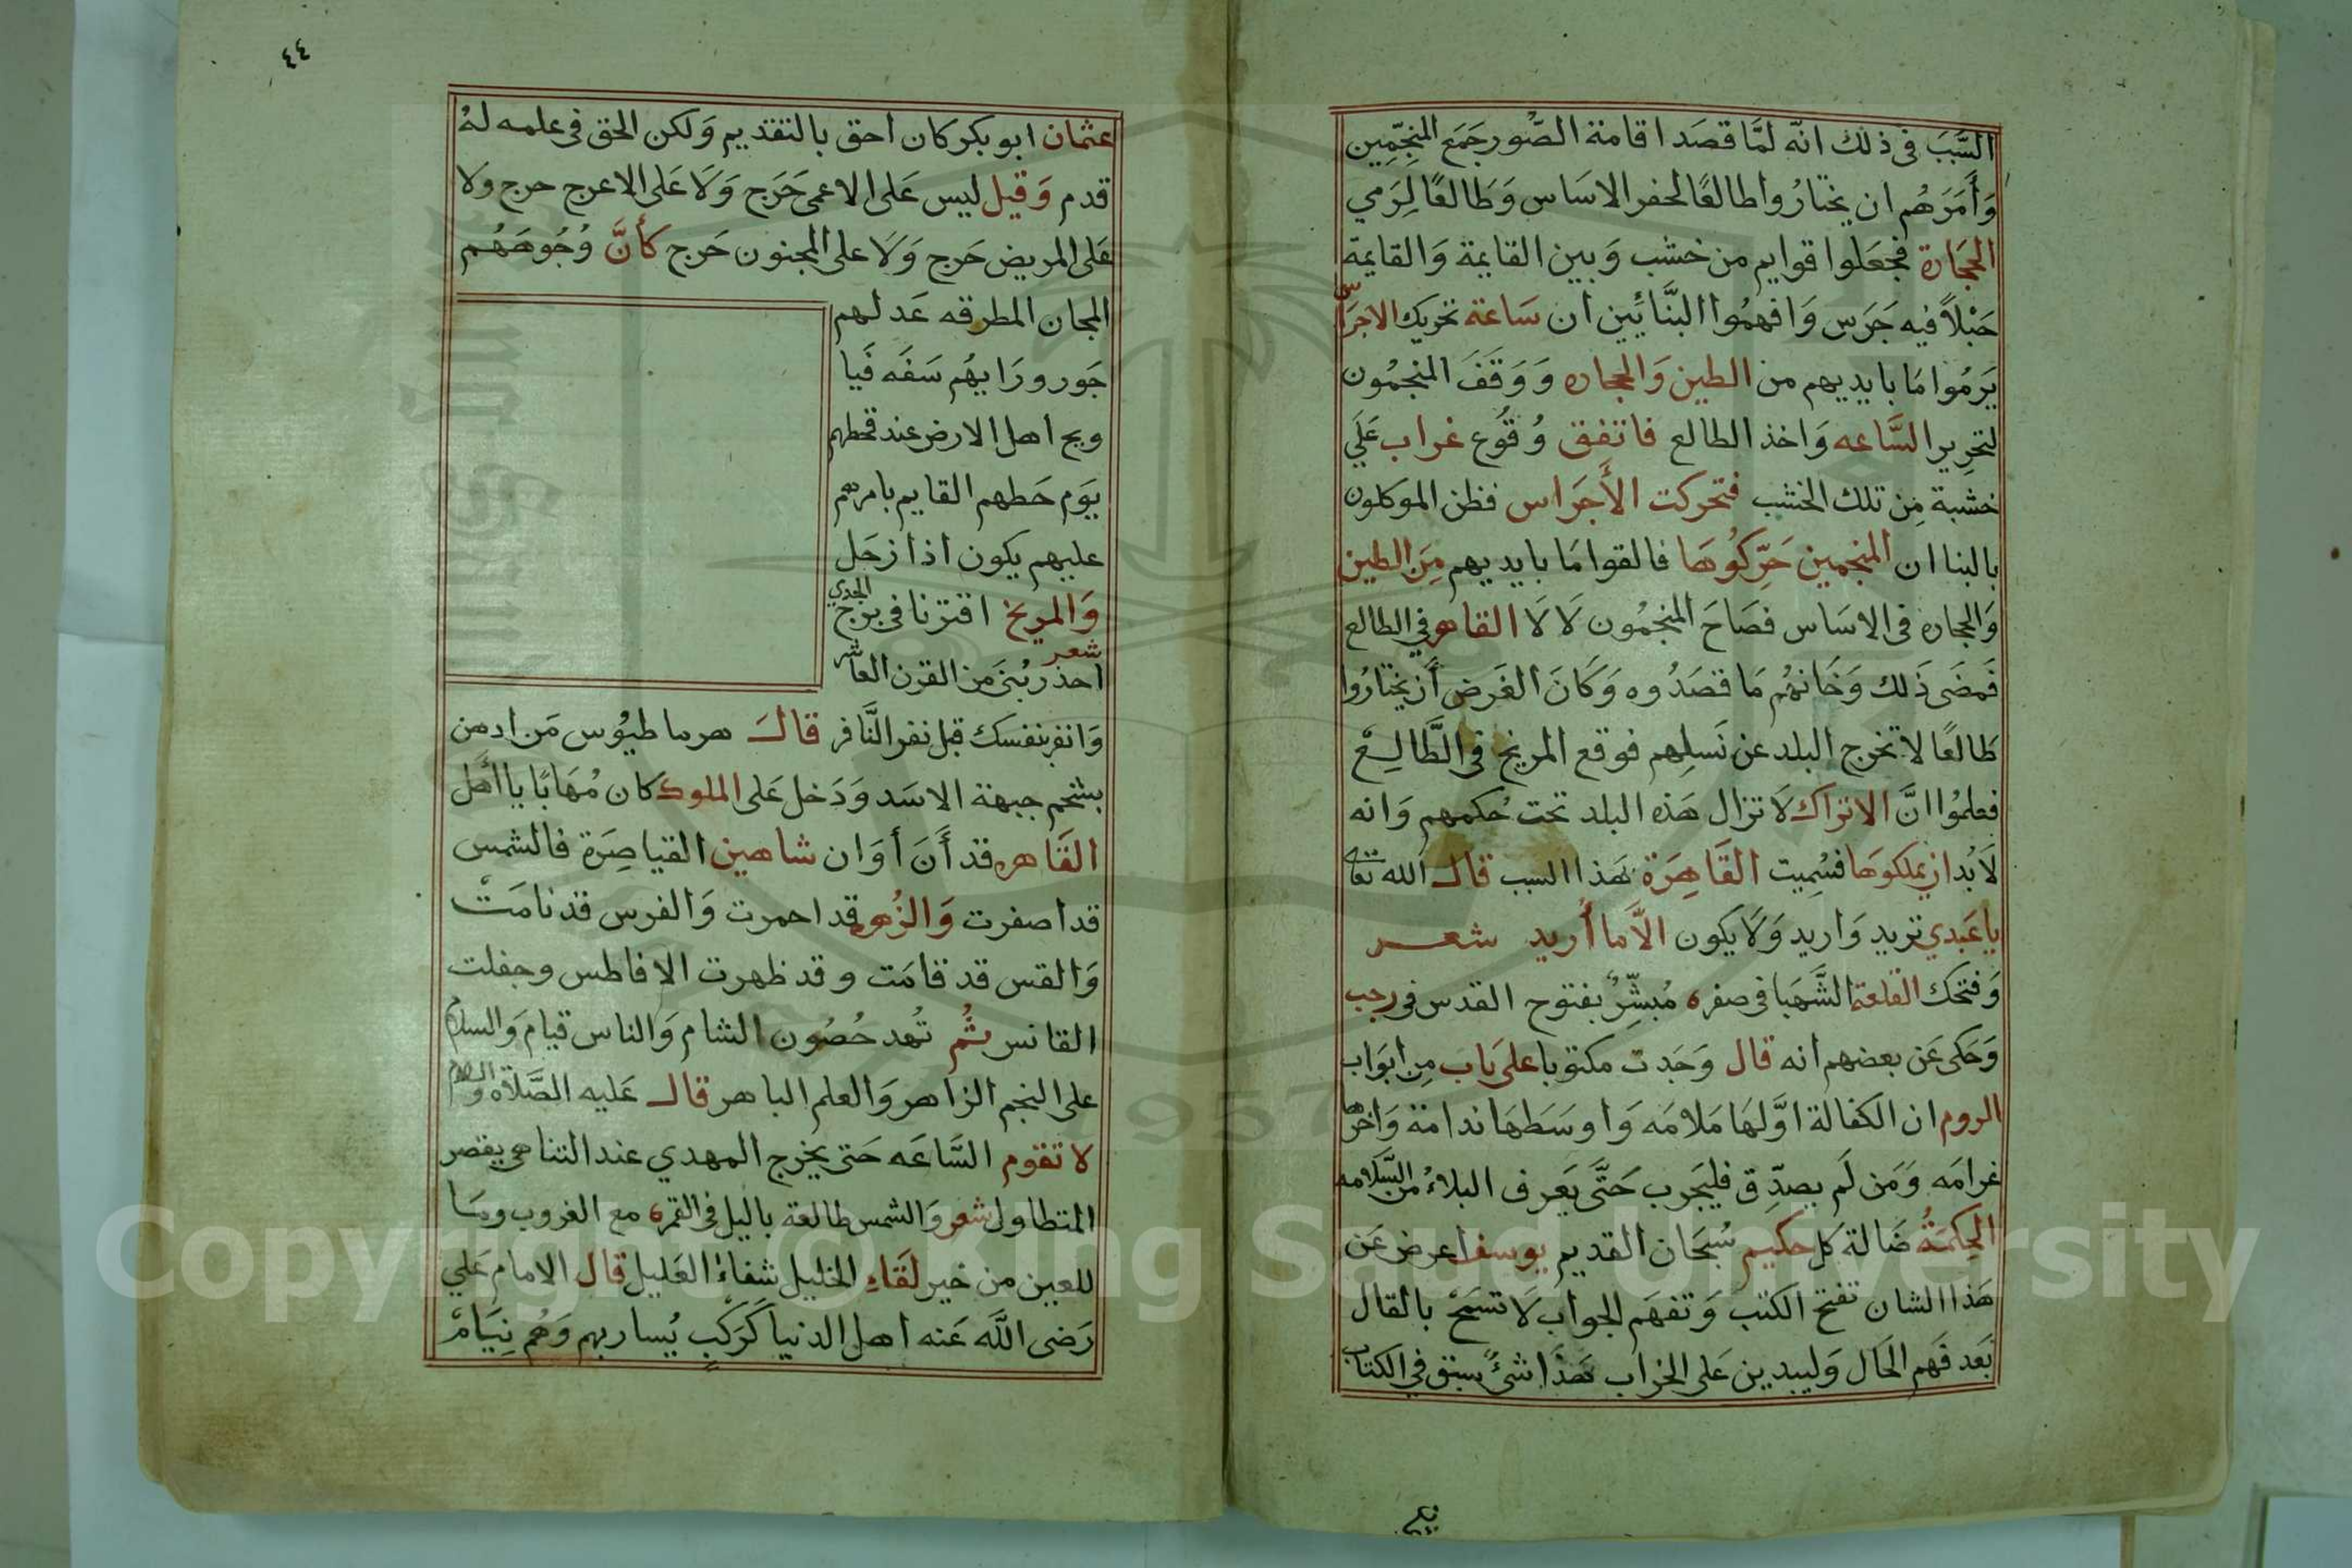 السَّبَب فى ذلك انّه لمَّا قصَد اقامة الصُّور جَمَع المنجِّمِين
وَأَمَرَهُم ان يختارُوا طالعًا لحفر الاسَاس وَطَالعًا لِرَمي
الحجَارة فجعَلوا قوايم من خشب وَبين القايمة وَالقايمة
حَبْلاً فيه جَرَس وَافهمُوا البنَّائين ان سَاعة تحريك الاجراس
يَرمُوا مَا بايديهم من الطين وَالحجاره وَوَقَفَ المنجمُون
لتحرِير السَّاعه وَاخذ الطالع فاتفق وُقُوع غراب عَلَي
خشبة مِن تلك الخشب فتحركت الأَجرَاس فظن الموكلون
بالبنا ان المنجمين حَرّكُوهَا فالقوا مَا بايديهم مِنَ الطين
وَالحجاره فى الاسَاس فصَاحَ المنجمُون لَا لَا القاهر في الطالع
فَمضَى ذَلك وَخَانهُم مَا قصَدُوه وَكَانَ الغَرض أَن يختارُوا
طَالعًا لا تخرج البلد عن نَسلِهم فوقع المريخ فى الطَّالِع
فعلمُوا انَّ الاتراك لَا تزال هَذه البلد تحت حُكمهم وَانه
لَا بُد ان يملكوهَا فسُمِيت القَاهِرَة بهَذا السبب قال الله تعا
يا عَبدي تريد وَاريد وَلَا يكون الَّا ما أُريد شعر
وَفتحك القلعة الشَّهبا فى صفر ه مُبشِّرٌ بفتوح القدس فى رجب
وَحَكى عَن بعضهم انه قال وَجَدت مكتوبا على بَاب مِن ابوَاب
الروم ان الكفالة اوَّلهَا مَلامَه وَاوسَطهَا ندامَة وَاخرها
غرامَه وَمَن لَم يصدِّق فليجَرب حَتَّى يَعرف البلاءُ من السَّلامه
الحِكمَةُ ضَالة كل حكيم سُبحَان القديم يوسف اعرض عَن
هَذا الشان تفتح الكتب وَتفهَم الجواب لَا تسمَحْ بالقال
بَعد فَهم الحَال وَليبدين عَلى الخراب هَذا شئٌ سبق في الكتاب
٤٤
عثمان ابو بكر كان احق بالتقديم وَلكن الحق فى علمه لهُ
قدم وَقيل ليس عَلى الاعمى حَرَج وَلَا عَلى الاعرج حرج ولا
عَلى المريض حَرج وَلَا على المجنون حَرج كأنَّ وُجُوهَهُم
المجان المطرقه عَدلهم
جَور ورَايهُم سَفَه فَيا
ويح اهل الارض عند قحطهم
يَوَم حَطهم القايم بامرهم
عليهم يكون اذا زحَل
وَالمريخ اقترنا فى برج الجدي
شعر
احذر بُنَى مَن القرن العاشر
وَانفر بنفسك قبل نفر النَّافر قال هرماطيُوس مَن ادهن
بشحم جبهة الاسَد وَدَخل عَلى الملوك كان مُهَابًا يا أَهل
القَاهره قد أَنَ أوَان شاهين القياصِرَة فالشمس
قد اصفرت وَالزُهره قد احمرت وَالفرس قد نامَتْ
وَالقس قد قامَت وقد ظهرت الافاطس وجفلت
القانس ثُم تُهد حُصُون الشام وَالناس قيام وَالسلام
على النجم الزاهر وَالعلم الباهر قال عَليه الصَّلاة والسلام
لا تقوم السَّاعَه حَتى يخرج المهدي عند التناهى يقصر
المتطاول شعر وَالشمس طالعة باليل فى القمر ه مع الغروب ومَا
للعين من خير لقَاء الخليل شفاءُ العَليل قال الامام عَلي
رَضى اللَّه عَنه اهل الدنيا كَرَكْبٍ يُسار بهم وَهُم نِيَامْ